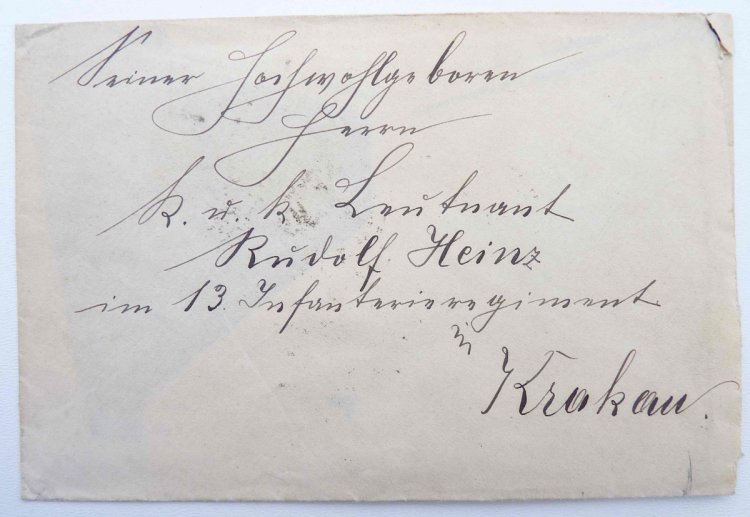 Seiner Hochwohlgeboren
Herrn
K. u. k Leutnant
Rudolf Heinz
im 13. Infanterieregiment
in
Krakau.